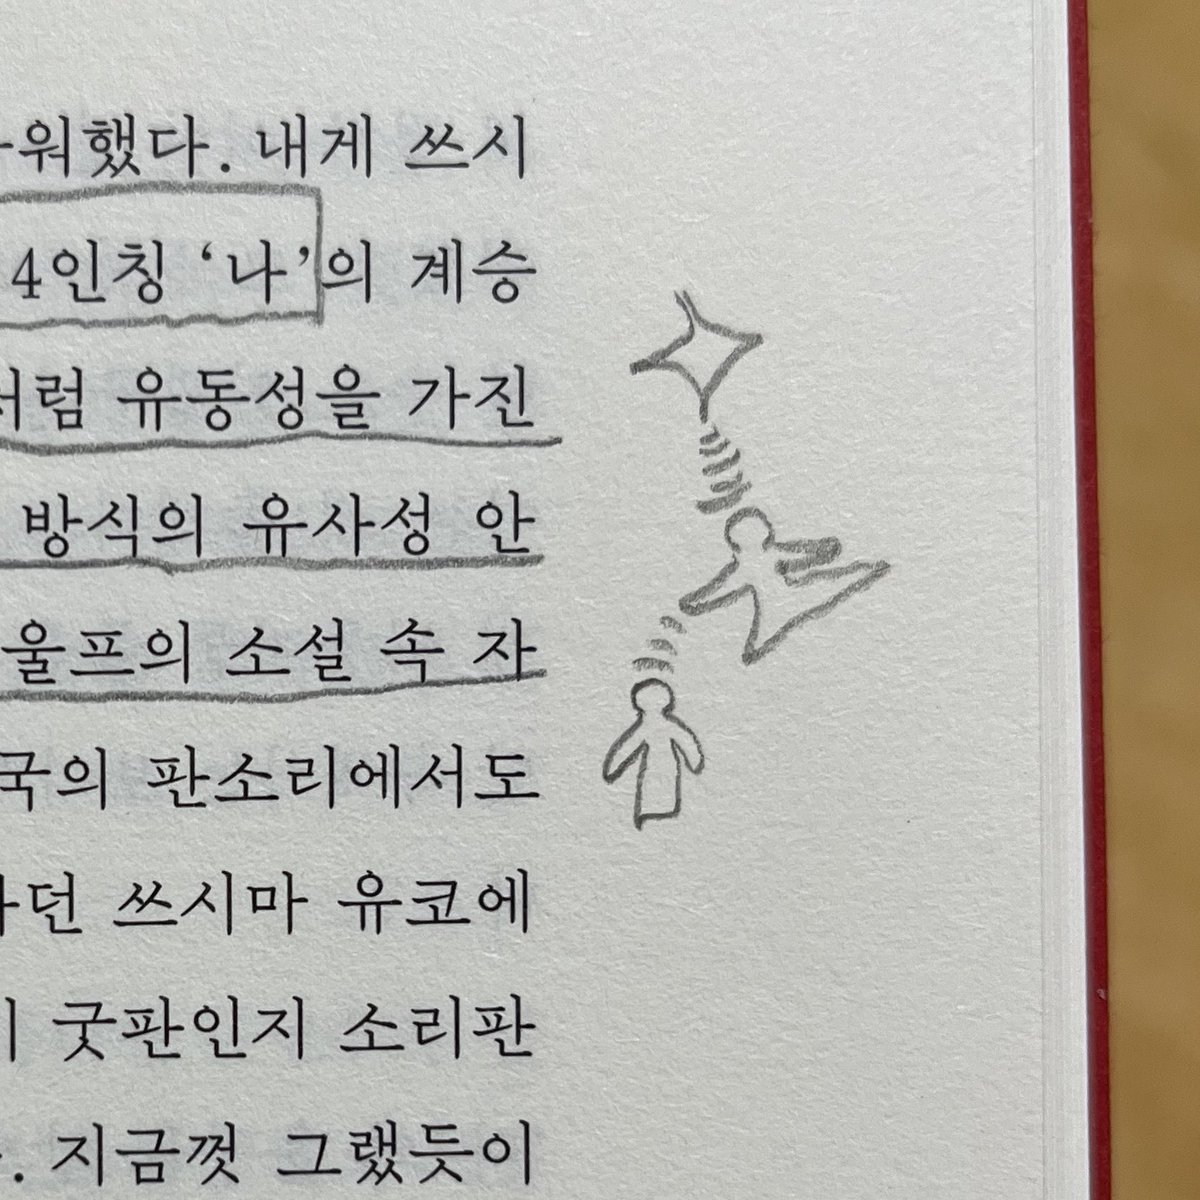 워했다. 내게 쓰시
4인칭 ‘나’의 계승
처럼 유동성을 가진
방식의 유사성 안
울프의 소설 속 자
국의 판소리에서도
던 쓰시마 유코에
굿판인지 소리판
. 지금껏 그랬듯이